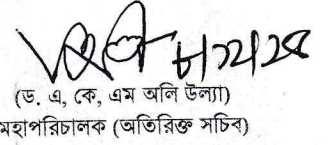 (ড. এ, কে, এম অলি উল্যা)
মহাপরিচালক (অতিরিক্ত সচিব)